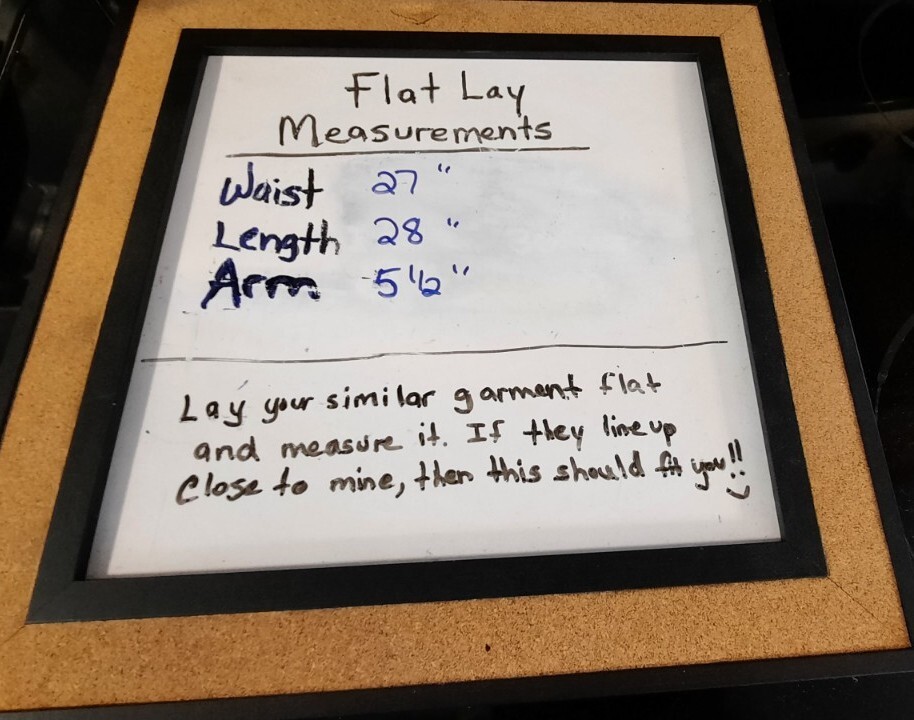 Flat Lay
Measurements
Waist 27"
Length 28"
Arm 5 1/2"
Lay your similar garment flat
and measure it. If they line up
close to mine, then this should fit you!!